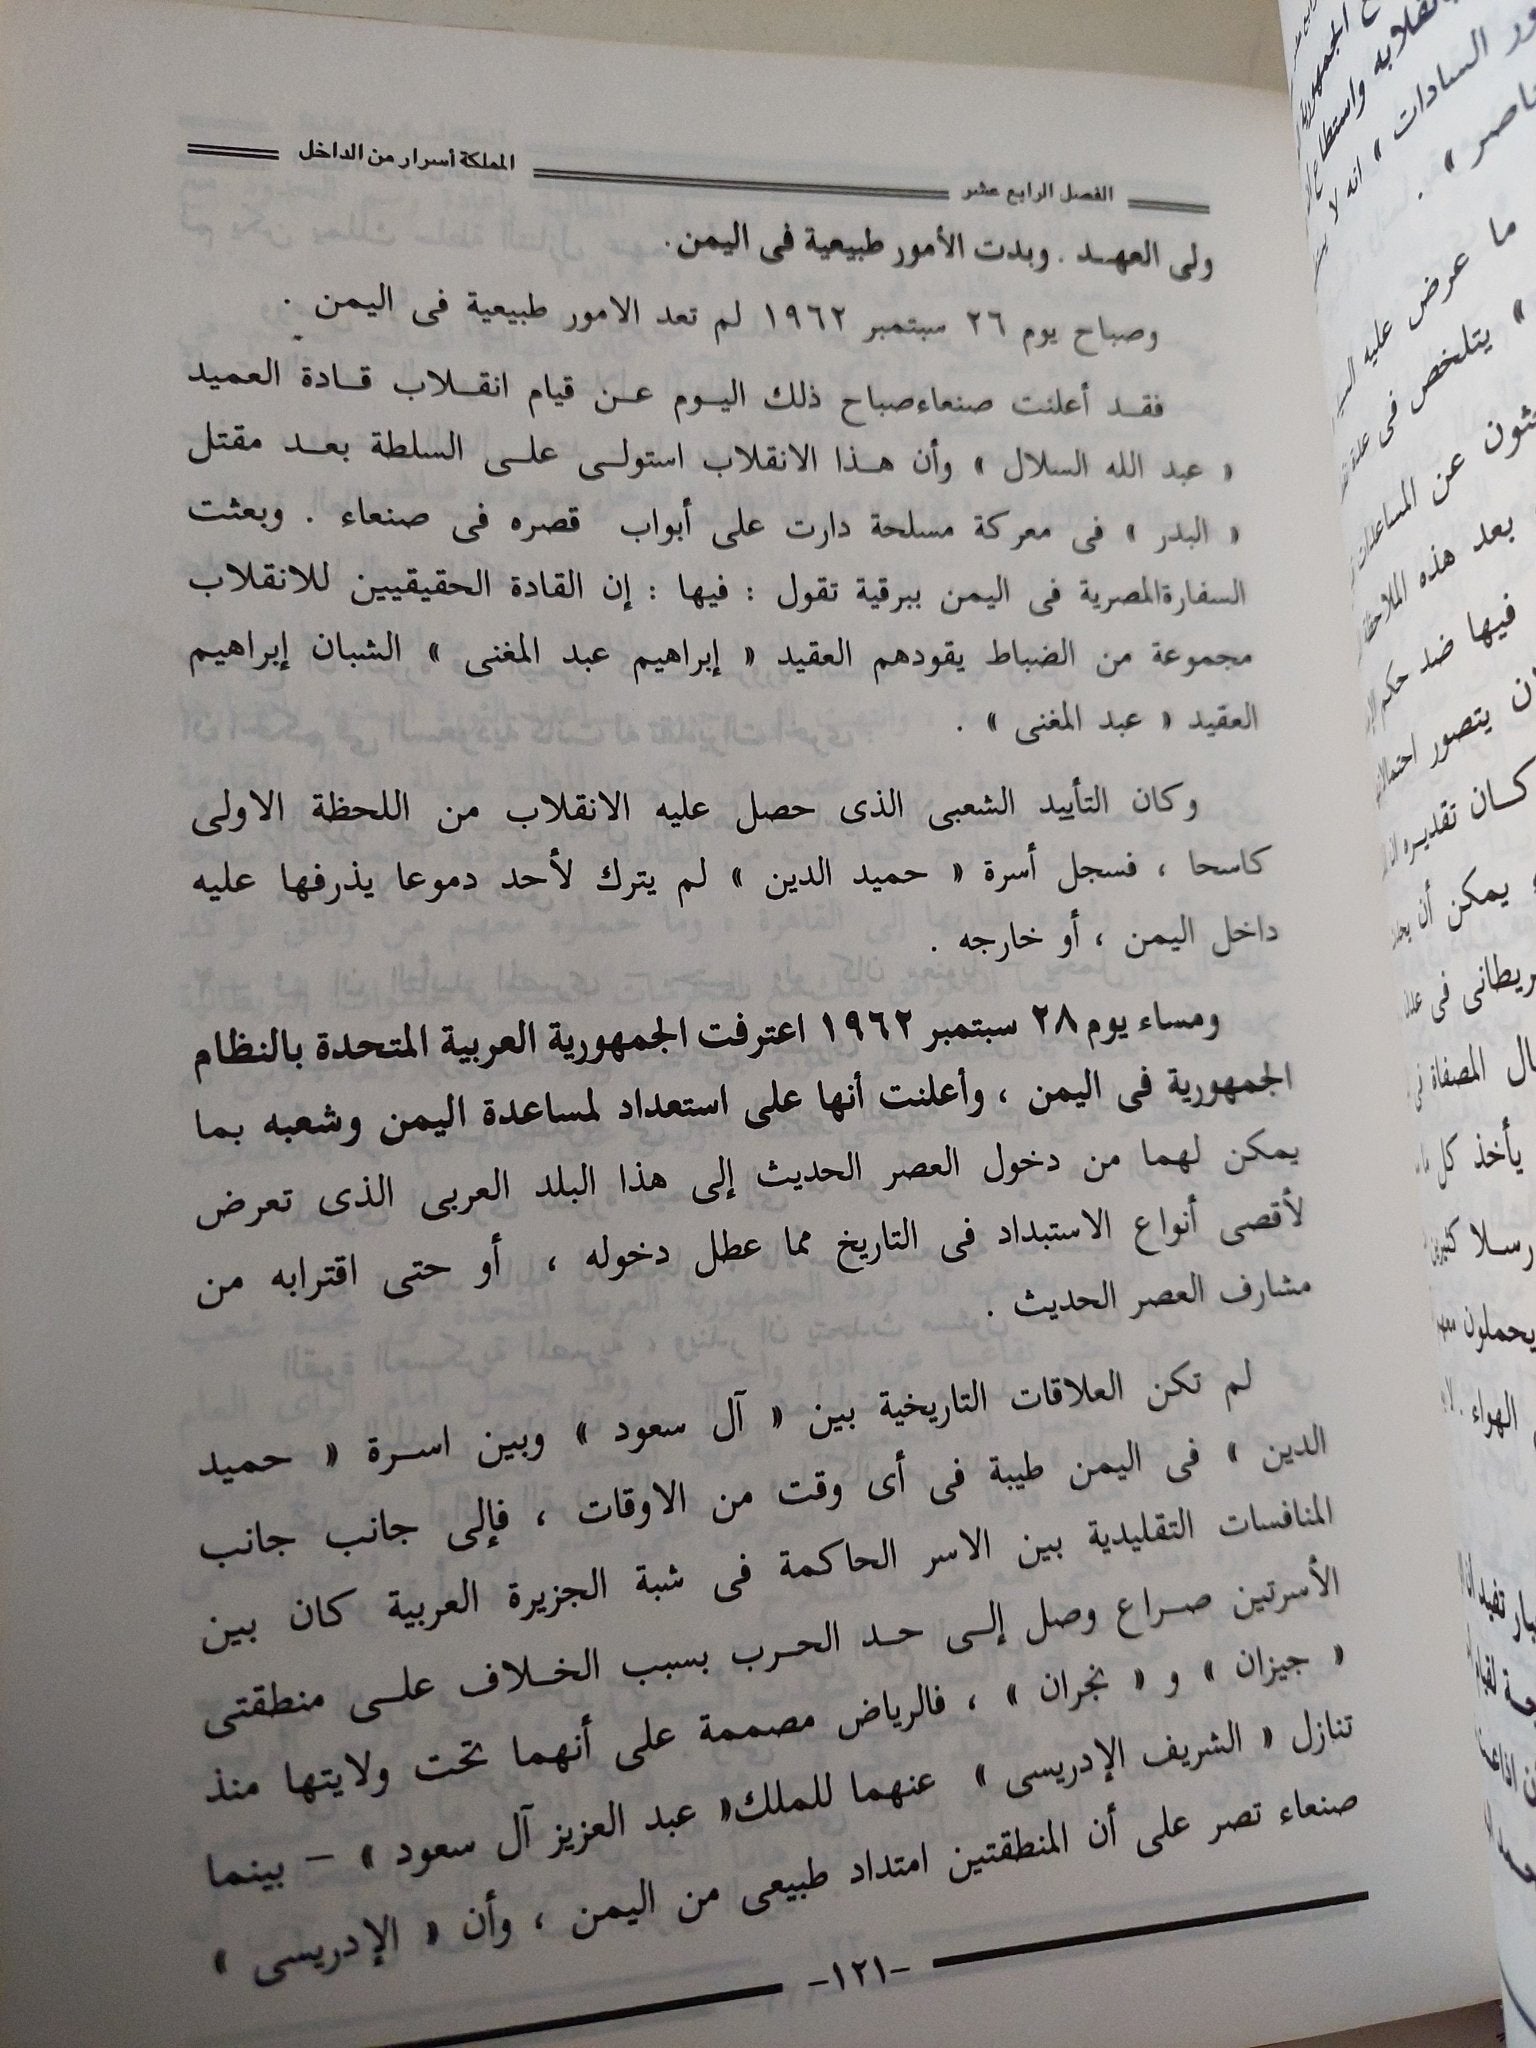 الفصل الرابع عشر
المملكة أسرار من الداخل
ولى العهد . وبدت الأمور طبيعية فى اليمن .
وصباح يوم ٢٦ سبتمبر ١٩٦٢ لم تعد الامور طبيعية فى اليمن .
فقد أعلنت صنعاءصباح ذلك اليوم عن قيام انقلاب قادة العميد
« عبد الله السلال » وأن هذا الانقلاب استولى على السلطة بعد مقتل
« البدر » فى معركة مسلحة دارت على أبواب قصره فى صنعاء . وبعثت
السفارةالمصرية فى اليمن ببرقية تقول : فيها : إن القادة الحقيقيين للانقلاب
مجموعة من الضباط يقودهم العقيد « إبراهيم عبد المغنى » الشبان إبراهيم
العقيد « عبد المغنى » .
وكان التأييد الشعبى الذى حصل عليه الانقلاب من اللحظة الاولى
كاسحا ، فسجل أسرة « حميد الدين » لم يترك لأحد دموعا يذرفها عليه
داخل اليمن ، أو خارجه .
ومساء يوم ٢٨ سبتمبر ١٩٦٢ اعترفت الجمهورية العربية المتحدة بالنظام
الجمهورية فى اليمن ، وأعلنت أنها على استعداد لمساعدة اليمن وشعبه بما
يمكن لهما من دخول العصر الحديث إلى هذا البلد العربى الذى تعرض
لأقصى أنواع الاستبداد فى التاريخ مما عطل دخوله ، أو حتى اقترابه من
مشارف العصر الحديث .
لم تكن العلاقات التاريخية بين « آل سعود » وبين اسرة « حميد
الدين » فى اليمن طيبة فى أى وقت من الاوقات ، فإلى جانب جانب
المنافسات التقليدية بين الاسر الحاكمة فى شبة الجزيرة العربية كان بين
الأسرتين صراع وصل إلى حد الحرب بسبب الخلاف على منطقتى
« جيزان » و « نجران » ، فالرياض مصممة على أنهما تحت ولايتها منذ
تنازل « الشريف الإدريسى » عنهما للملك« عبد العزيز آل سعود » – بينما
صنعاء تصر على أن المنطقتين امتداد طبيعى من اليمن ، وأن « الإدريسى »
–١٢١–
السادات » انه لا
ما عرض عليه
» يتلخص فى
عن المساعدات
بعد هذه
فيها ضد حكم
يتصور
تقديره
يمكن أن
فى
المصفاة
يأخذ كل
رسلا
يحملون
الهواء